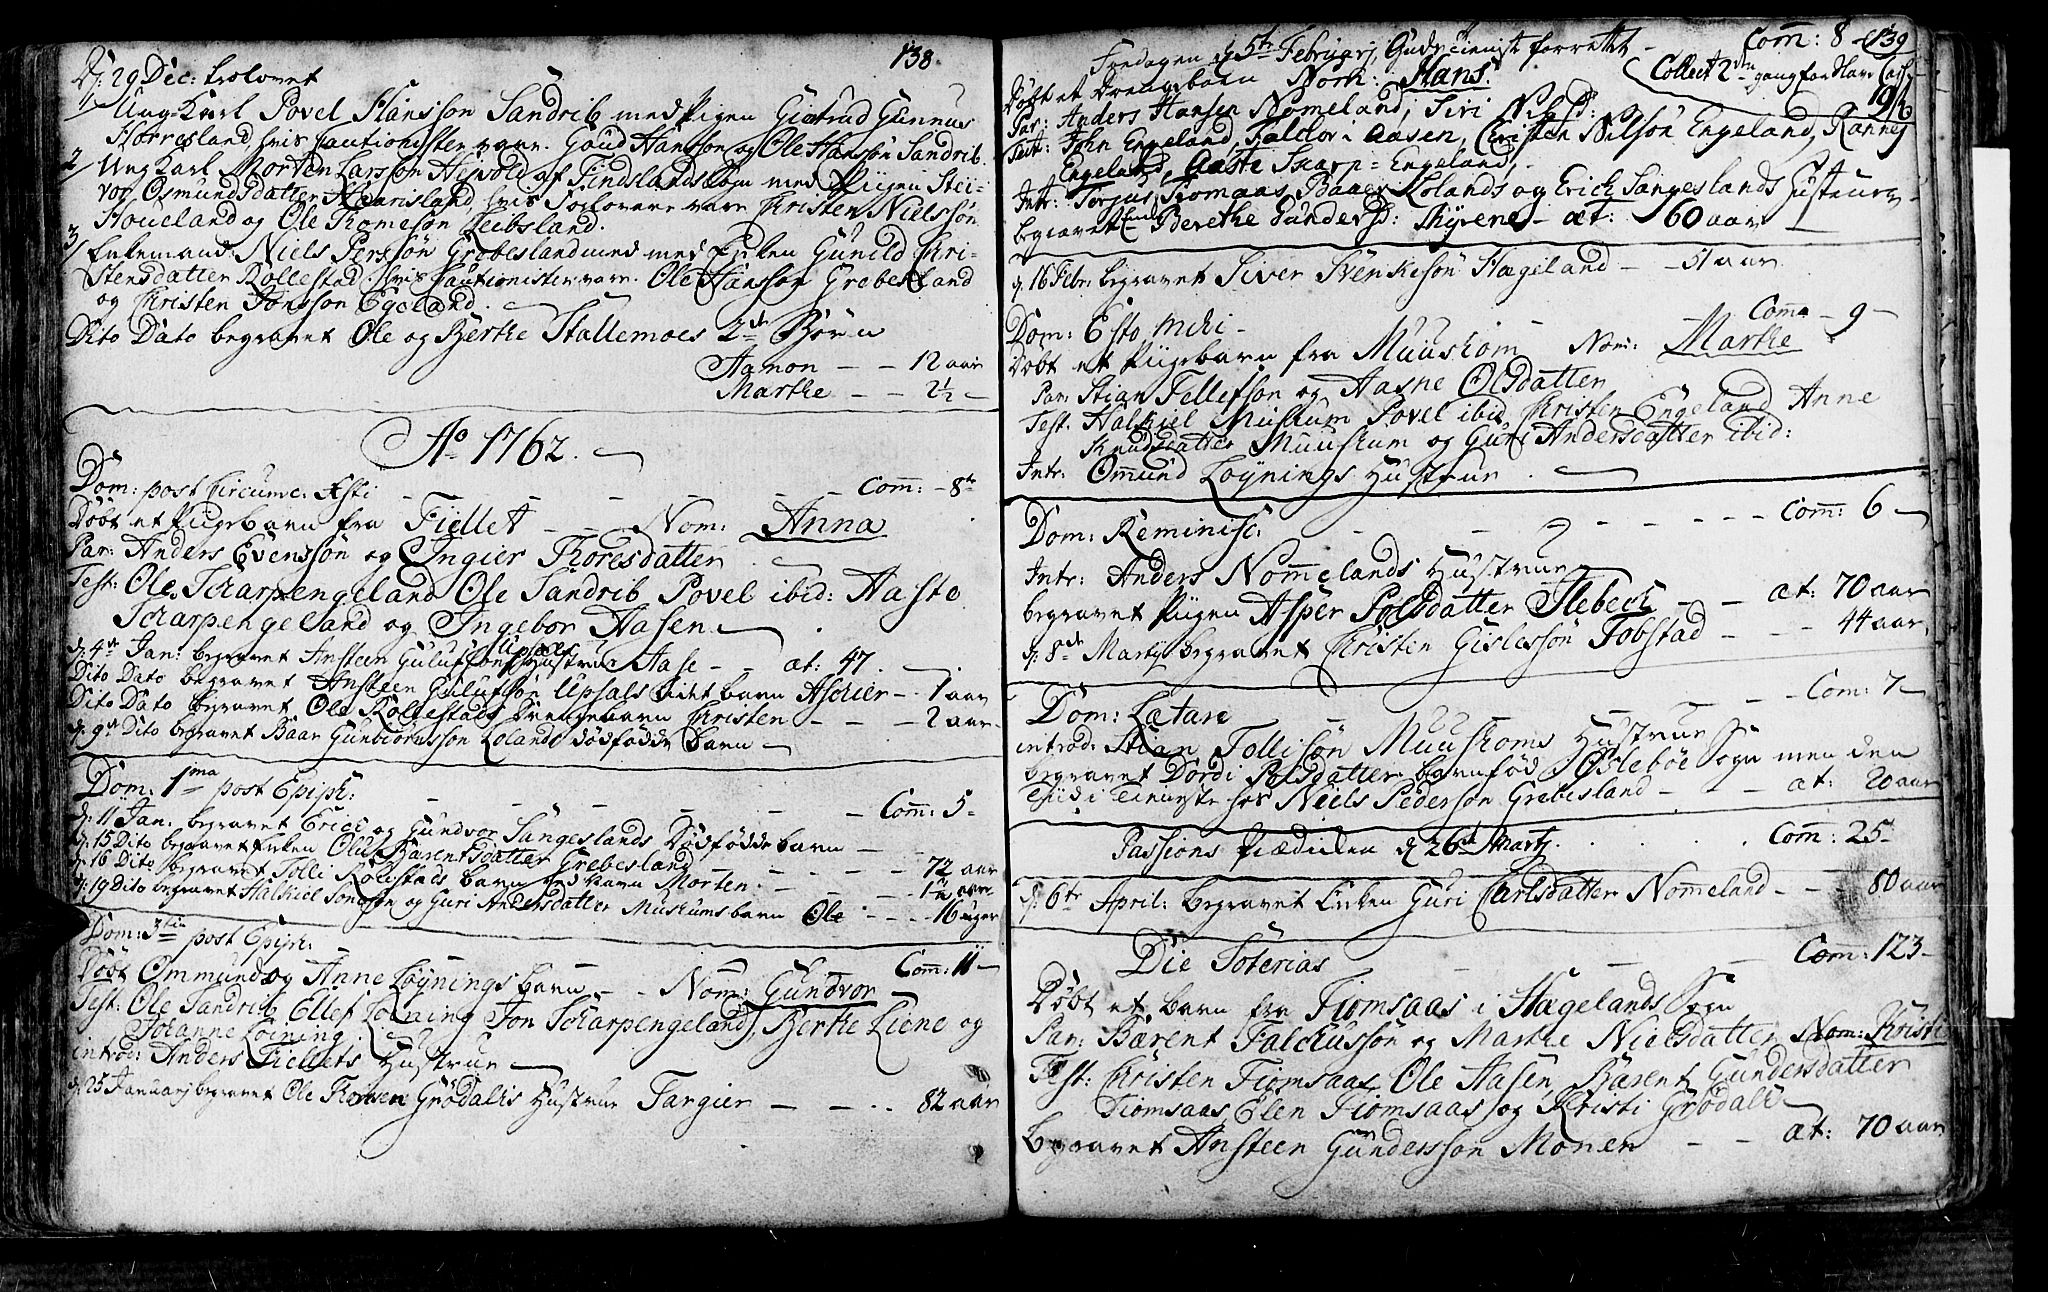 138.
D: 29 Dec: trolovet
Ung-Karl Povel Hansson Sandrib med Pigen Giertrud Gunnus
Horresland, hvis Cautionister vare. Goud Hansson og Ole Hansøn Sandrib.
2/ Ung Karl Morten Larsson af Findslands Sogn med Piigen Stei-
vor Osmundsdatter Haarisland, hvis Forlovere vare Christen Nielssøn
Houeland og Ole Tromesøn Leibsland.
3/ Enkemand Niels Perssøn Grebesland med Enken Gunild Chri-
stensdatter Rollestad hvis Cautionister vare. Ole Hansson Grebesland
og Christen Jonsson Egeland.
Dito Dato begravet Ole og Berthe Stallemoes 2de Børn
Aamon - - 12 aar
Marthe - - 2½ -
Ao 1762.
Dom: post Circumc: Xsti - - - - Com: - 8te
Døbt et Pigebarn fra Fiellet - - Nom: Anna
Par: Anders Evenssøn og Ingier Thoresdatter
Test: Ole Scharpengeland Ole Sandrib Povel ibid: Aaste
Scharpengeland og Ingebor Aasen.
d. 4de Jan: begravet Ansteen Gulufsøns Upsals Hustrue Aase - - æt: 47.
Dito Dato begravet Ansteen Gulufsøn Upsals barn Aschier - 1 aar
Dito Dato begravet Ole Rollestads Drengebarn Christen - - - 2 aar
d. 9de Dito begravet Baar Gunbiørnssøn Lolands dødfødde barn -
Dom: 1ma post Epiph: - - - - Com: 5-
d. 11 Jan: begravet Erich og Gundvor Sangeslands Dødfødde barn
d. 15 Dito begravet Enken Oluf Barentsdatter Grebesland - - - 72 aar
d. 16 Dito begravet Tolli Rollestads barn Morten - - - 1½ aar
d. 19 Dito begravet Halchiel og Guri Andersdatter Muskums barn Ole - - - 16 uger
Dom: 3tia post Epiph: Com: 11-
Døbt Ommund og Anne Løynings barn - - Nom: Gundvor
Test: Ole Sandrib, Ellef Løyning Jon Scharpengeland, Berthe Liene og
Johanne Løining.
introd: Anders Fiellets Hustrue
d. 25 Januarj begravet Ole Grødalss Hustrue Targier - - . . 82 aar
139
Fredagen d 5te Februarj, Gudstienist forrettet - Com: 8
Døbt et Drengebarn Nom: Hans. Collect 2den gang for
Par: Anders Hansen Nomeland, Siri
Test: John Engeland, Falchor i Aasen, Christen Nilssøn Engeland, Ranney
Engeland, Aaste Skarp=Engeland,
Intr: Torjus Tromaas, Baaer Lolands og Erich Sangeslands Hustruer
begravet Berethe Gundersd: Thyrene - æt: 60 aar
d. 16 Febr: begravet Siver Svenkesøn Hægeland - - 51 aar
Dom: Esto mihi - Com: - 9 -
Døbt et Pigebarn fra Muuskom Nom: Marthe
Par: Stian Tellefsøn og Aasne Olsdatter
Test. Halchiel Muskum Povel ibid, Christen Engeland Anne
Knudsdatter Muuskum og Guri Andersdatter ibid:
Intr: Ommund Løynings Hustrue
Dom: Reminisc: - - - - Com: 6 -
Intr: Anders Nommelands Hustrue
begravet Piigen Asper Polsdatter Stebeck - - æt: 70 aar
d. 8de Martj begravet Christen Gislessøn Fobstad - - - 44 aar
Dom: Lætare - - Com: 7-
introd: Stian Tollissøn Muuskoms Hustrue
begravet Dordi Polsdatter barnfød i Øslebøe Sogn men den
Tiid i Tieneste hos Niels Pedersøn Grebesland - - æt: 20 aar
Passions Prædicken d 26de Martj. . . . . Com: 25-
d. 6te April: begravet Enken Guri Carlsdatter Nomeland - - 80 aar
Die Soterias - - Com: 123-
Døbt et barn fra Fiomsaas i Hægelands Sogn
Par: Barent Falchussøn og Marthe Nielsdatter Nom: Christi
Test: Christen Fiomsaas, Ole Aasen, Barent Gundersdatter
Fiomsaas Elen Fiomsaas og Kristi Grødals
begravet Ansteen Gunderssøn Monen - - æt: 70 aar